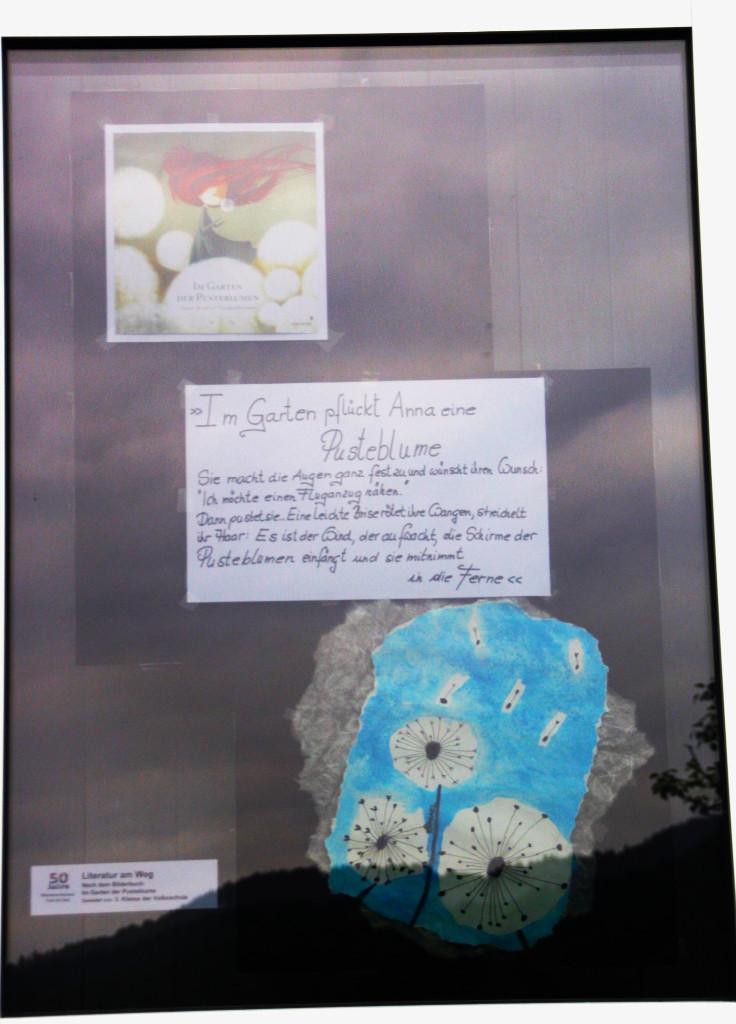 IM GARTEN
DER PUSTEBLUMEN
»Im Garten pflückt Anna eine
Pusteblume
Sie macht die Augen ganz fest zu und wünscht ihren Wunsch:
"Ich möchte einen Fluganzug nähen."
Dann pustet sie. Eine leichte Brise rötet ihre Wangen, streichelt
ihr Haar: Es ist der Wind, der aufwacht, die Schirme der
Pusteblumen einfängt und sie mitnimmt
in die Ferne «
50
Jahre
Literatur am Weg
Nach dem Bilderbuch:
Im Garten der Pusteblume
Gestaltet von: 3. Klasse der Volksschule